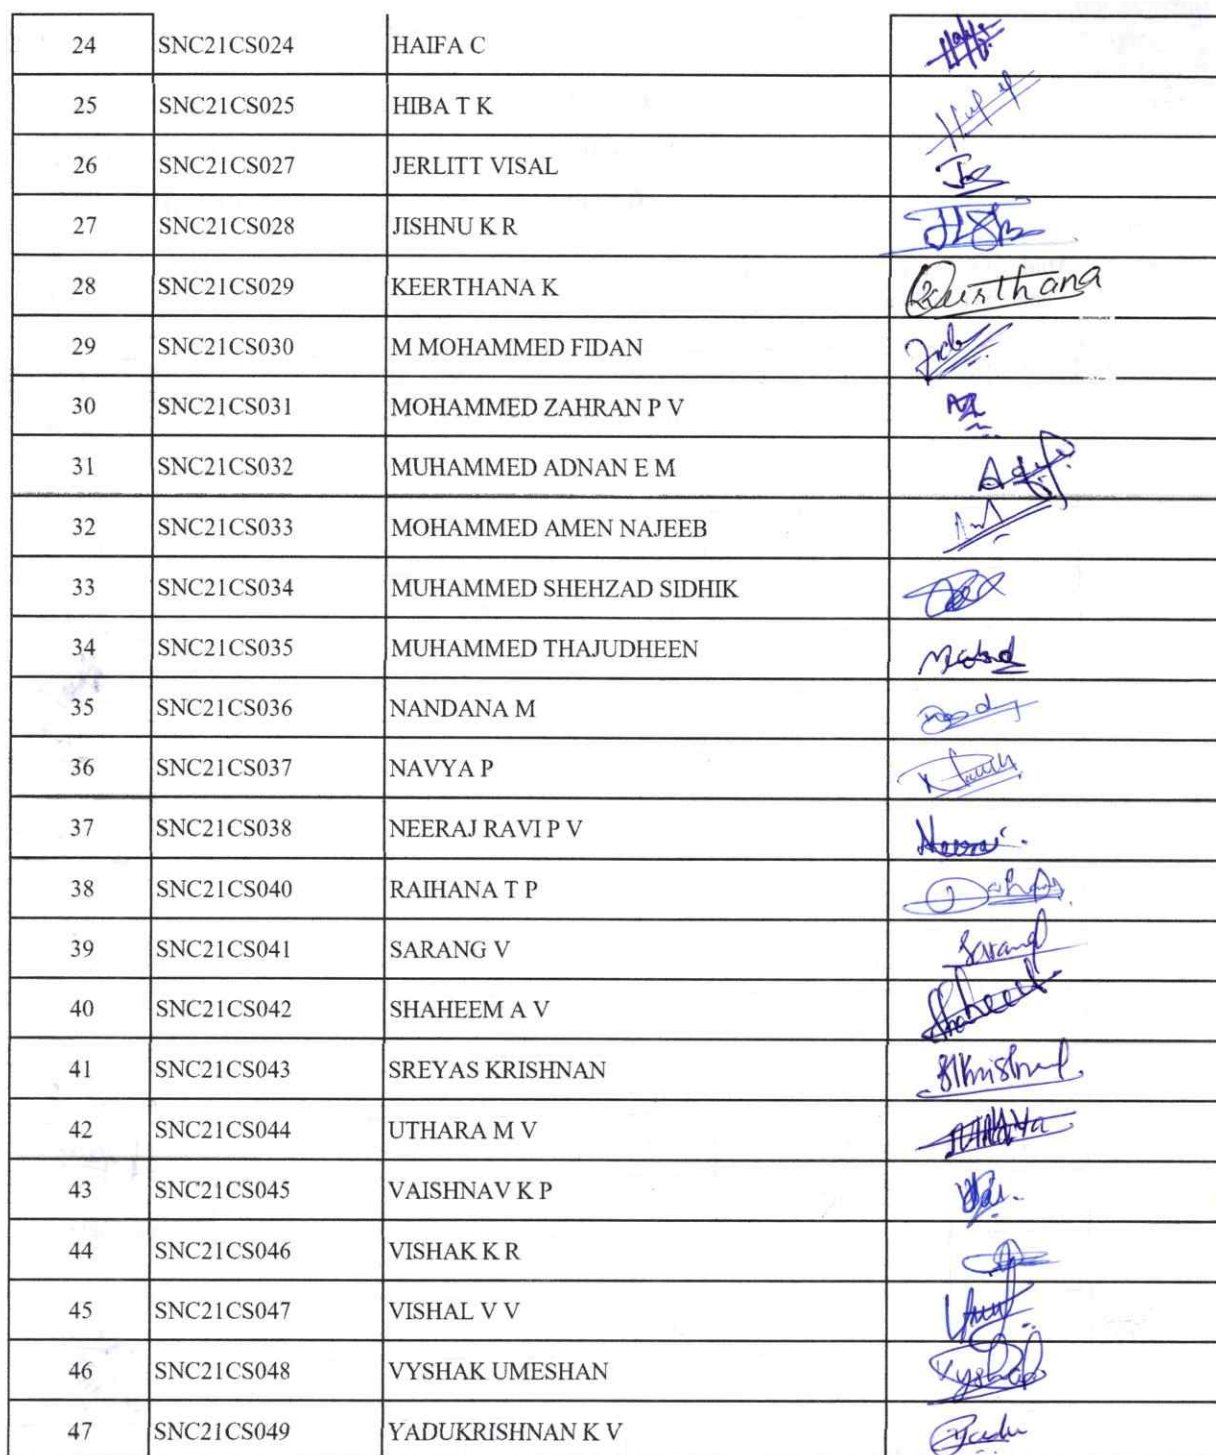 24 SNC21CS024 HAIFA C
25 SNC21CS025 HIBA T K
26 SNC21CS027 JERLITT VISAL
27 SNC21CS028 JISHNU K R
28 SNC21CS029 KEERTHANA K
29 SNC21CS030 M MOHAMMED FIDAN
30 SNC21CS031 MOHAMMED ZAHRAN P V
31 SNC21CS032 MUHAMMED ADNAN E M
32 SNC21CS033 MOHAMMED AMEN NAJEEB
33 SNC21CS034 MUHAMMED SHEHZAD SIDHIK
34 SNC21CS035 MUHAMMED THAJUDHEEN
35 SNC21CS036 NANDANA M
36 SNC21CS037 NAVYA P
37 SNC21CS038 NEERAJ RAVI P V
38 SNC21CS040 RAIHANA T P
39 SNC21CS041 SARANG V Sarang
40 SNC21CS042 SHAHEEM A V
41 SNC21CS043 SREYAS KRISHNAN
42 SNC21CS044 UTHARA M V
43 SNC21CS045 VAISHNAV K P
44 SNC21CS046 VISHAK K R
45 SNC21CS047 VISHAL V V
46 SNC21CS048 VYSHAK UMESHAN Vyshak
47 SNC21CS049 YADUKRISHNAN K V Yadu